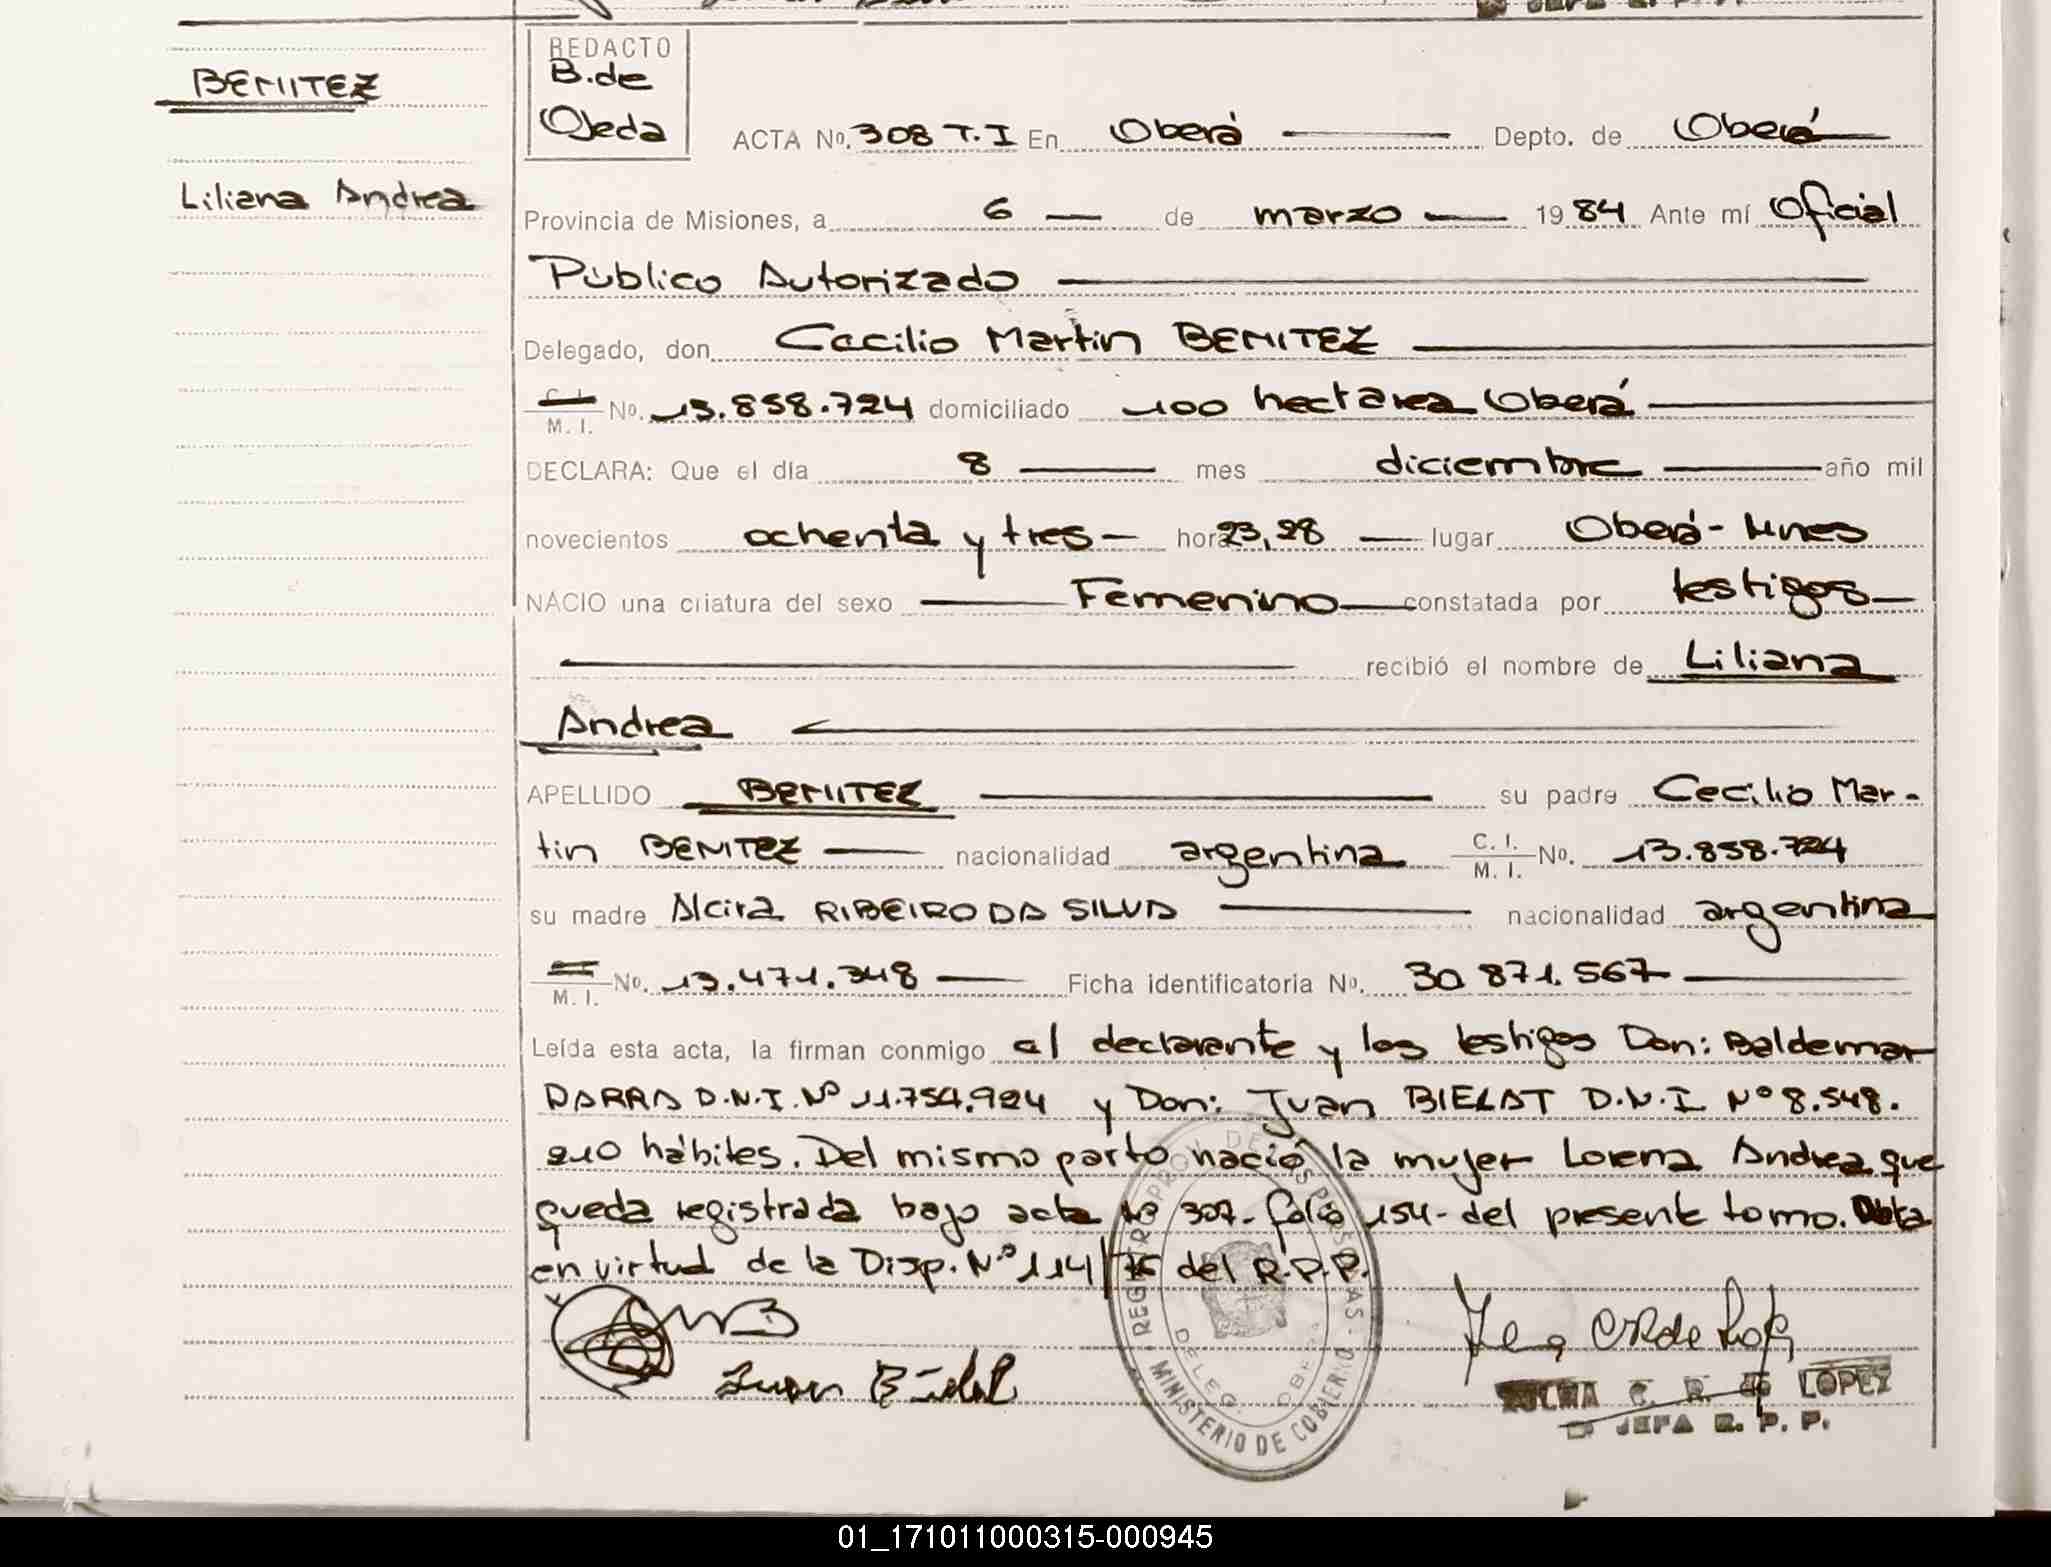 BENITEZ
Liliana Andrea
REDACTO
B. de
Ojeda
ACTA No. 308 T. I En Oberá Depto. de Oberá
Provincia de Misiones, a 6 de marzo 1984 Ante mí Oficial
Público Autorizado
Delegado, don Cecilio Martin BENITEZ
C. I. M. I. No. 13.858.724 domiciliado 100 hectarea Oberá
DECLARA: Que el día 8 mes diciembre año mil
novecientos ochenta y tres hora 23,28 lugar Oberá - Mnes
NACIO una criatura del sexo Femenino constatada por testigos
recibió el nombre de Liliana
Andrea
APELLIDO BENITEZ su padre Cecilio Mar-
tin BENITEZ nacionalidad argentina C. I. M. I. No. 13.858.724
su madre Alcira RIBEIRO DA SILVA nacionalidad argentina
M. I. No. 13.471.348 Ficha identificatoria No. 30 871.567
Leída esta acta, la firman conmigo el declarante y los testigos Don: Baldemar
PARRA D.N.I. Nº 11.754.924 y Don: Juan BIELAT D.N.I Nº 8.548.
210 hábiles. Del mismo parto nació la mujer Lorena Andrea que
queda registrada bajo acta Nº 307 - folio 154 - del presente tomo.
en virtud de la Disp. Nº 114/75 del R.P.P.
REGISTRO PROV. DE LAS PERSONAS
DELEG. OBERA
MINISTERIO DE GOBIERNO
Juan Bielat
C. R. de LOPEZ
JEFA R. P. P.
01_171011000315-000945